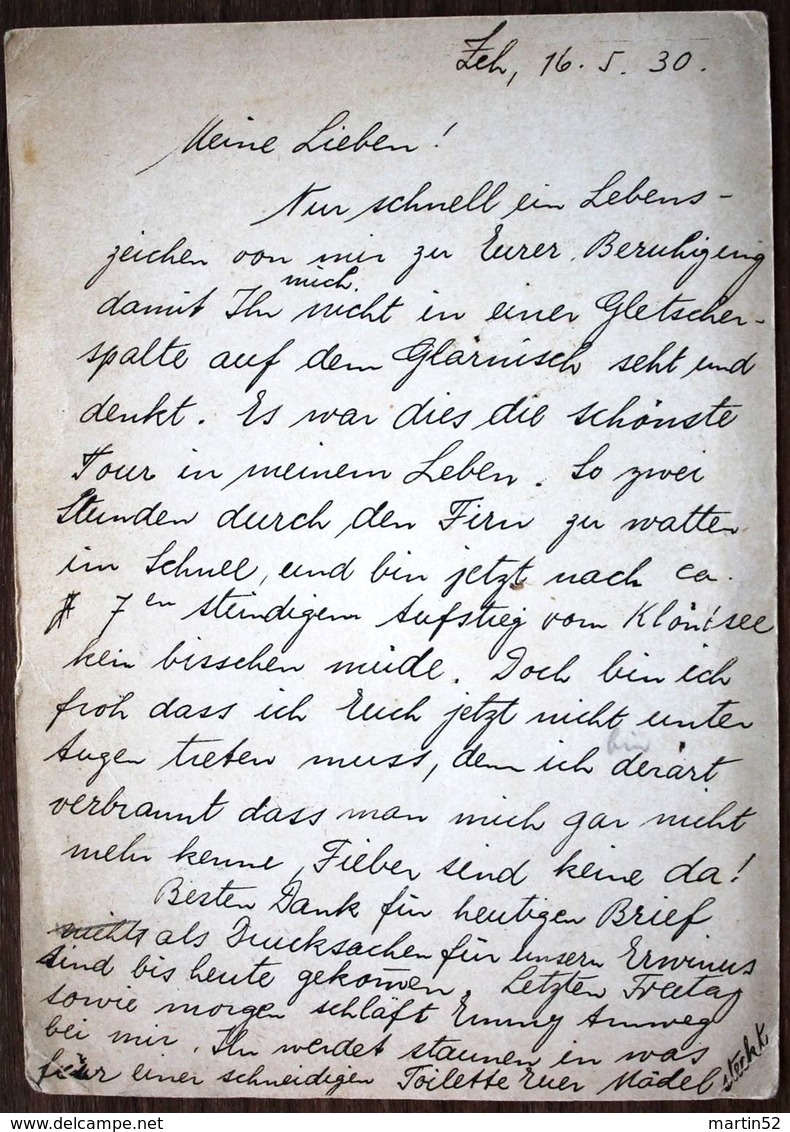 Zch, 16. 5. 30.
Meine Lieben!
Nur schnell ein Lebens-
zeichen von mir zu Eurer Beruhigung
mich
damit Ihr nicht in einer Gletscher-
spalte auf dem Glärnisch seht und
denkt. Es war dies die schönste
Tour in meinem Leben. So zwei
Stunden durch den Firn zu watten
im Schnee, und bin jetzt nach ca.
7 en stündigem Aufstieg vom Klöntsee
kein bisschen müde. Doch bin ich
froh dass ich Euch jetzt nicht unter
bin
Augen treten muss, denn ich derart
verbrannt dass man mich gar nicht
mehr kenne, Fieber sind keine da!
Besten Dank für heutigen Brief
nichts als Drucksachen für unsern Erwinus
sind bis heute gekommen. Letzten Freitag
sowie morgen schläft Emmy Amweg
bei mir. Ihr werdet staunen in was
für einer schneidigen Toilette Euer Mädel
steckt
martin52